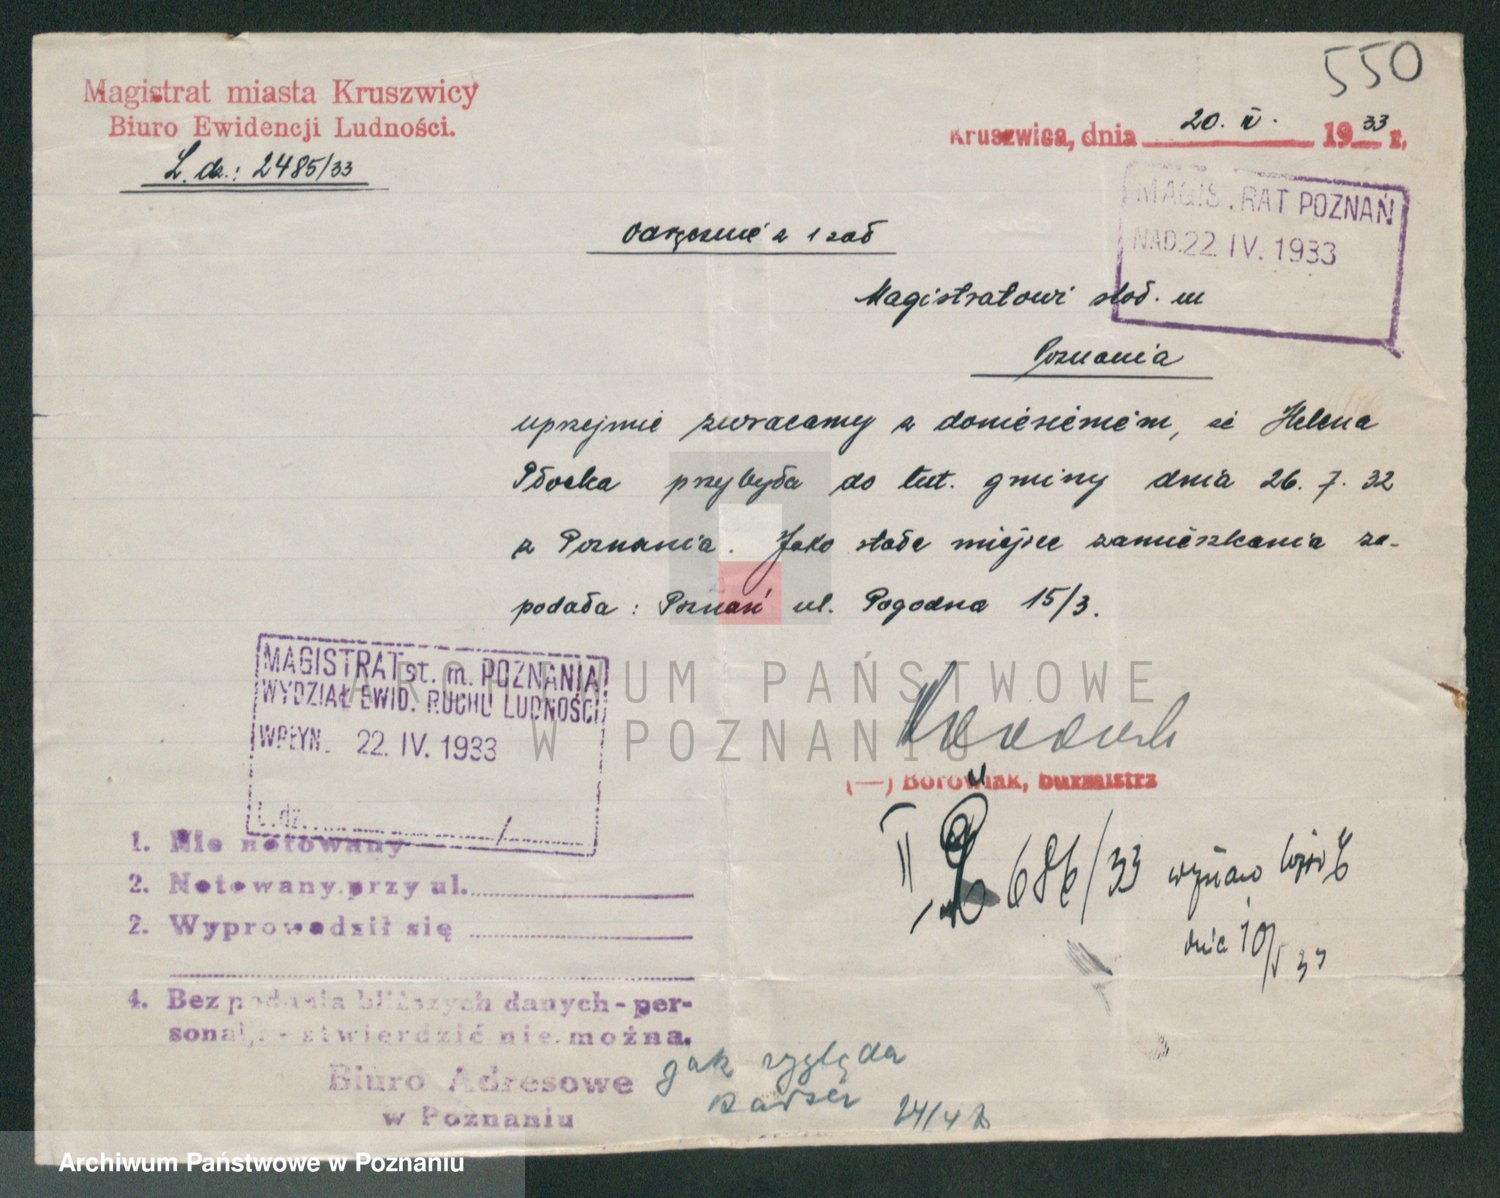 550
Magistrat miasta Kruszwicy
Biuro Ewidencji Ludności.
L. dz.: 2485/33
Kruszwica, dnia 20. IV. 1933 r.
MAGISTRAT POZNAŃ
NAD. 22 IV. 1933
Odręcznie z 1 zał
Magistratowi stoł. m
Poznania
uprzejmie zwracamy z doniesieniem, że Helena
Płocka przybyła do tut. gminy dnia 26. 7. 32
z Poznania. Jako stałe miejsce zamieszkania za-
podała: Poznań ul. Pogodna 15/3.
MAGISTRAT st. m. POZNANIA
WYDZIAŁ EWID. RUCHU LUDNOŚCI
WPŁYN. 22. IV. 1933
L. dz. /
ARCHIWUM PAŃSTWOWE
W POZNANIU
(—) Borowiak, burmistrz
II 686/33
dnia 10/5 33
1. Nie notowany
2. Notowany przy ul.
2. Wyprowadził się
4. Bez podania bliższych danych - per-
sonalj. - stwierdzić nie można.
Biuro Adresowe
w Poznaniu
jak wygląda
24/4
Archiwum Państwowe w Poznaniu